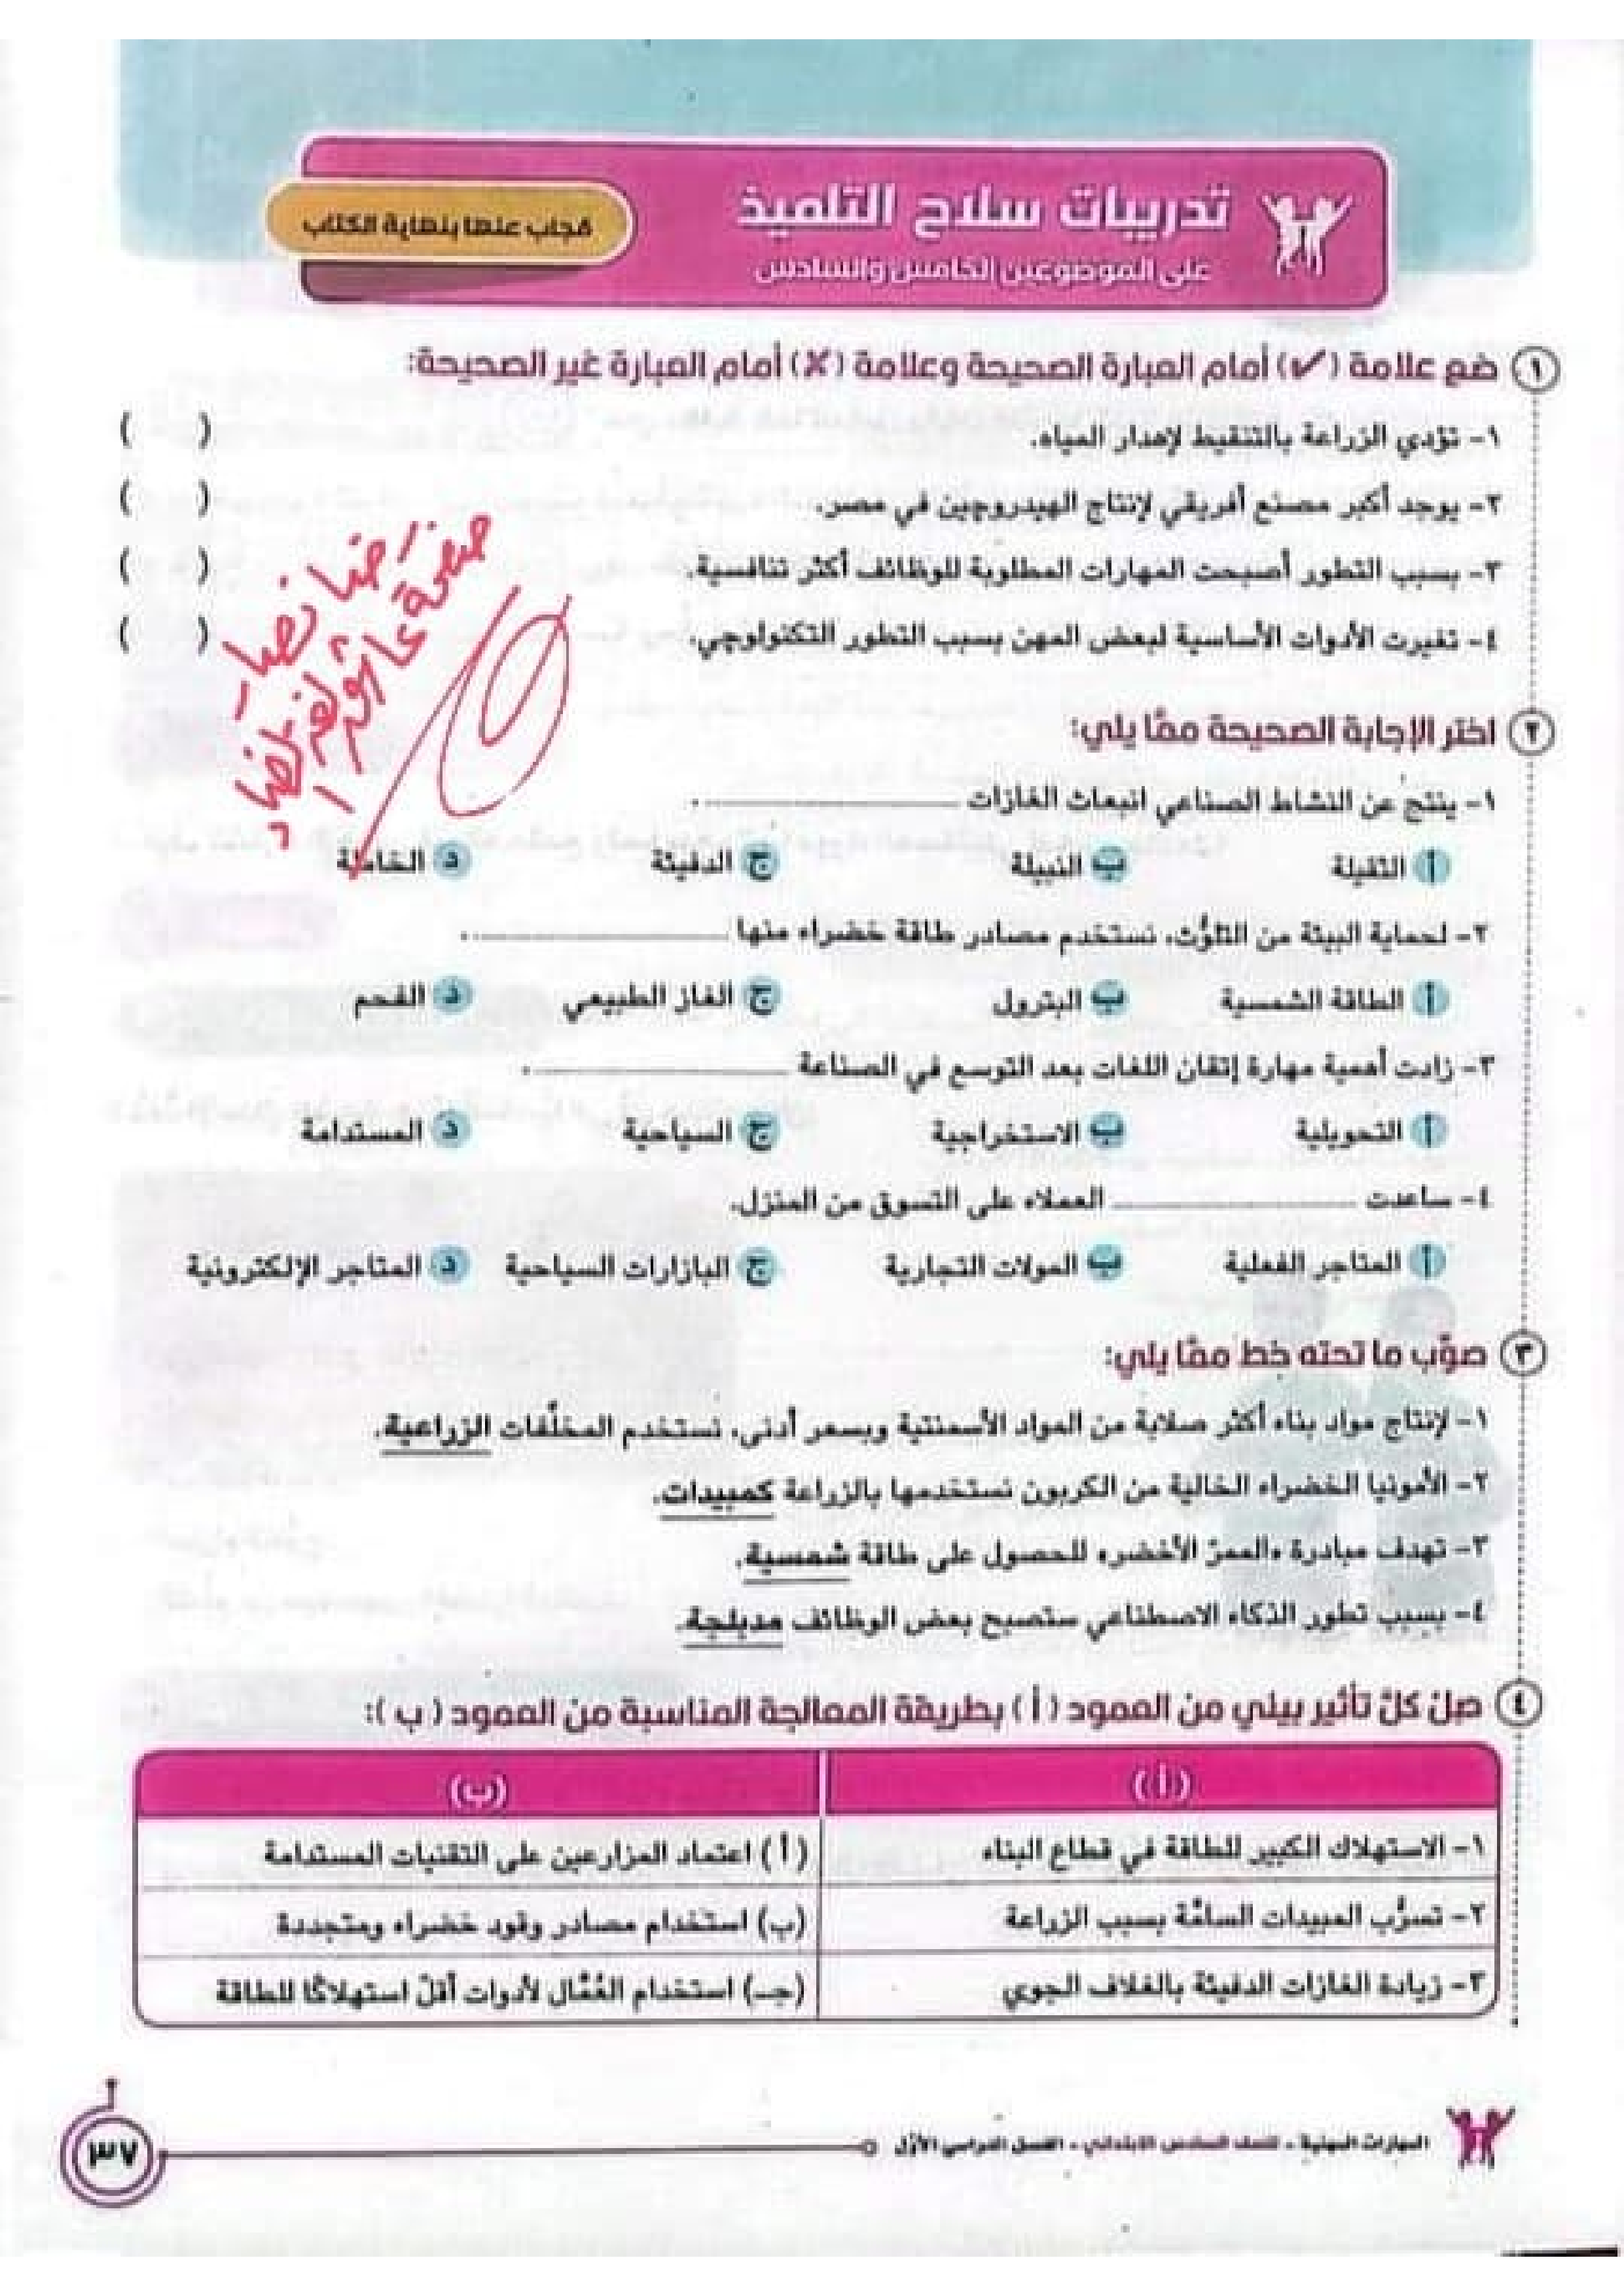 تدريبات سلاح التلميذ
مجاب عنها بنهاية الكتاب
على الموضوعين الخامس والسادس
١ ضع علامة (✓) أمام العبارة الصحيحة وعلامة (✗) أمام العبارة غير الصحيحة:
١- تؤدي الزراعة بالتنقيط لإهدار المياه. ( )
٢- يوجد أكبر مصنع أفريقي لإنتاج الهيدروجين في مصر. ( )
٣- بسبب التطور أصبحت المهارات المطلوبة للوظائف أكثر تنافسية. ( )
٤- تغيرت الأدوات الأساسية لبعض المهن بسبب التطور التكنولوجي. ( )
٢ اختر الإجابة الصحيحة ممَّا يلي:
١- ينتج عن النشاط الصناعي انبعاث الغازات ............ .
أ الثقيلة ب النبيلة ج الدفيئة د الخاملة
٢- لحماية البيئة من التلوُّث، نستخدم مصادر طاقة خضراء منها ............ .
أ الطاقة الشمسية ب البترول ج الغاز الطبيعي د الفحم
٣- زادت أهمية مهارة إتقان اللغات بعد التوسع في الصناعة ............ .
أ التحويلية ب الاستخراجية ج السياحية د المستدامة
٤- ساعدت ............ العملاء على التسوق من المنزل.
أ المتاجر الفعلية ب المولات التجارية ج البازارات السياحية د المتاجر الإلكترونية
٣ صوِّب ما تحته خط ممَّا يلي:
١- لإنتاج مواد بناء أكثر صلابة من المواد الأسمنتية وبسعر أدنى، نستخدم المخلَّفات الزراعية.
٢- الأمونيا الخضراء الخالية من الكربون نستخدمها بالزراعة كمبيدات.
٣- تهدف مبادرة «الممرّ الأخضر» للحصول على طاقة شمسية.
٤- بسبب تطور الذكاء الاصطناعي ستصبح بعض الوظائف مدبلجة.
٤ صِلْ كلَّ تأثير بيئي من العمود ( أ ) بطريقة المعالجة المناسبة من العمود ( ب ):
( أ ) (ب)
١- الاستهلاك الكبير للطاقة في قطاع البناء ( أ ) اعتماد المزارعين على التقنيات المستدامة
٢- تسرُّب المبيدات السامَّة بسبب الزراعة (ب) استخدام مصادر وقود خضراء ومتجددة
٣- زيادة الغازات الدفيئة بالغلاف الجوي (جـ) استخدام العُمَّال لأدوات أقلّ استهلاكًا للطاقة
المهارات المهنية - للصف السادس الابتدائي - الفصل الدراسي الأوَّل
٣٧